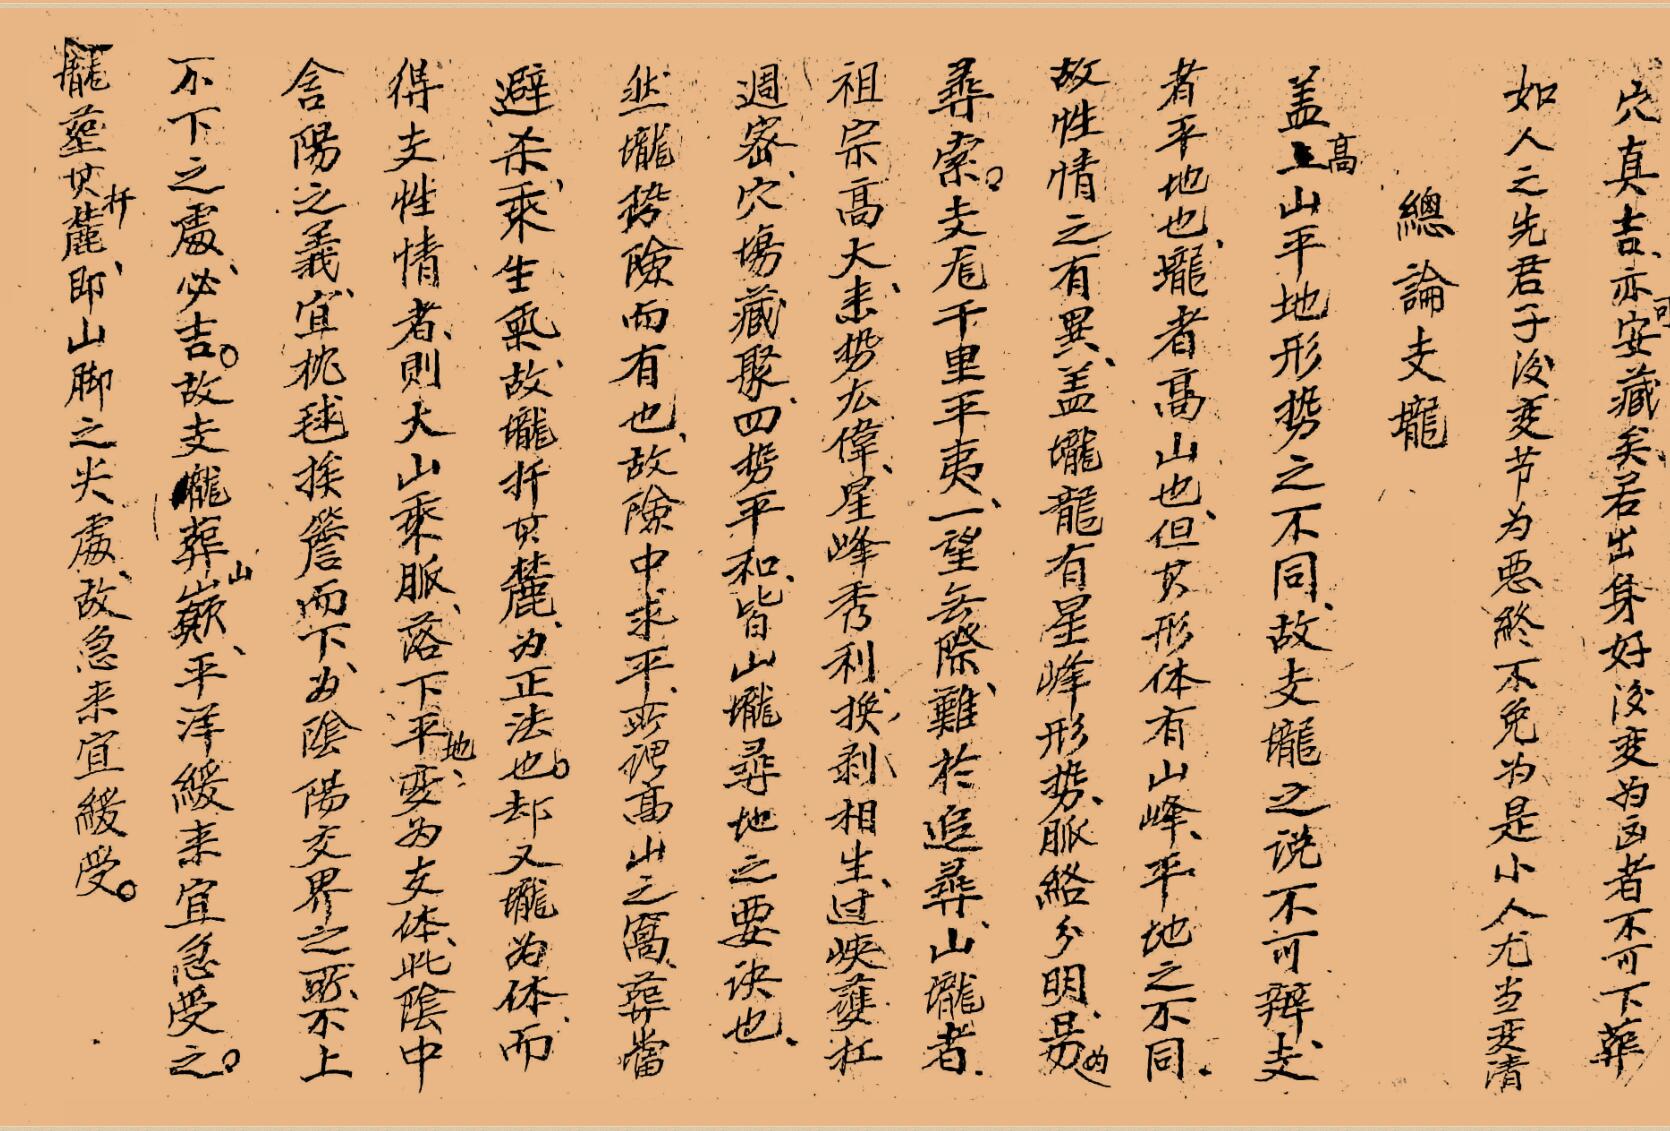 穴真吉、亦可安藏矣、若出身好後变为凶者不可下葬
如人之先君子後变节为恶終不免为是小人尤当变清
總論支壠
盖高山平地形势之不同、故支壠之说不可辩、支
者平地也、壠者高山也、但其形体有山峰、平地之不同、
故性情之有異、盖壠龍有星峰形势、脈絡分明、易为
尋索。支龍千里平夷、一望無際、難於追尋、山壠者、
祖宗高大、来势厷偉、星峰秀利、换剥相生、过峽護杠
週密、穴場藏聚、四势平和、皆山壠尋地之要诀也、
然壠势險而有也、故險中求平、所谓高山之窩、葬當
避杀、乘生氣、故壠扦其麓、为正法也。却又壠为体、而
得支性情者、則大山乘脈、落下平地、变为支体、此陰中
含陽之義、宜枕毬挨簷而下、为陰陽交界之所、不上
不下之處、必吉。故支壠葬山巔、平洋緩来宜急受之。
龍葬其扦麓、即山脚之尖處、故急来宜緩受。